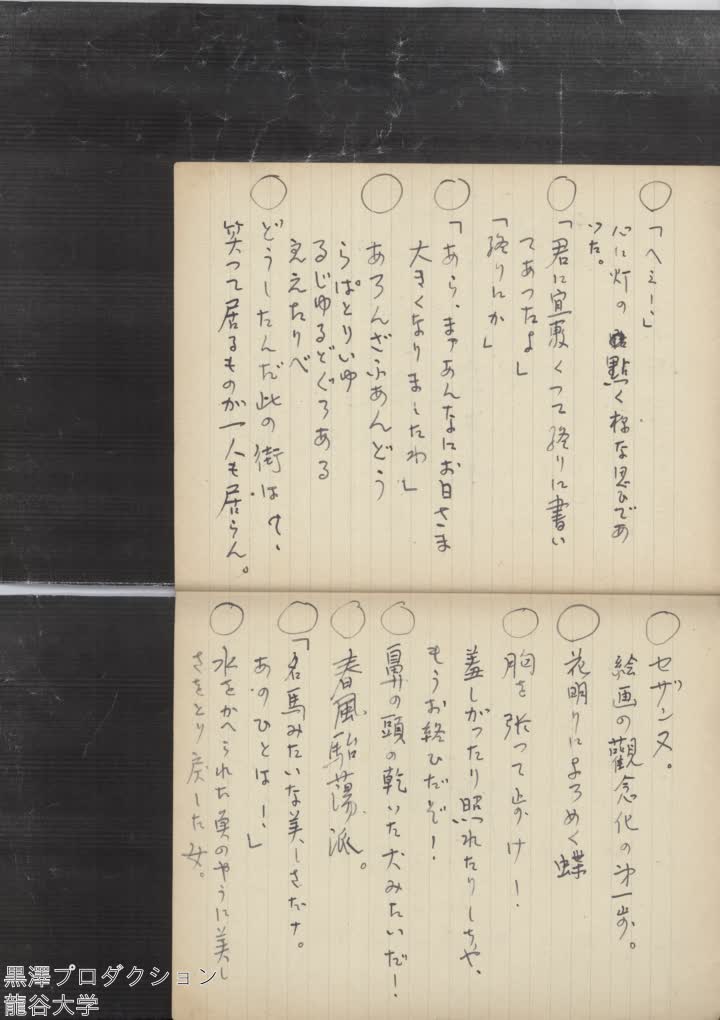 ○「ヘェー、」
心に灯の點く様な思ひであ
つた。
○「君に宜敷くつて終りに書い
てあつたよ」
「終りにか」
○「あら、まアあんなにお日さま
大きくなりましたわ」
○あろんざふあんどう
らぱとりいゆ
るじゆるどぐろある
ええたりべ
○どうしたんだ此の街は？、
笑つて居るものが一人も居らん。
○セザンヌ。
絵画の觀念化の第一歩。
○花明りによろめく蝶
○胸を張つて歩け！
羞しがったり照れたりしちや、
もうお終ひだぞ！
○鼻の頭の乾いた犬みたいだ！
○春風駘蕩派。
○「名馬みたいな美しさだナ。
あのひとは！」
○水をかへられた魚のやうに美し
さをとり戻した女。
黒澤プロダクション
龍谷大学